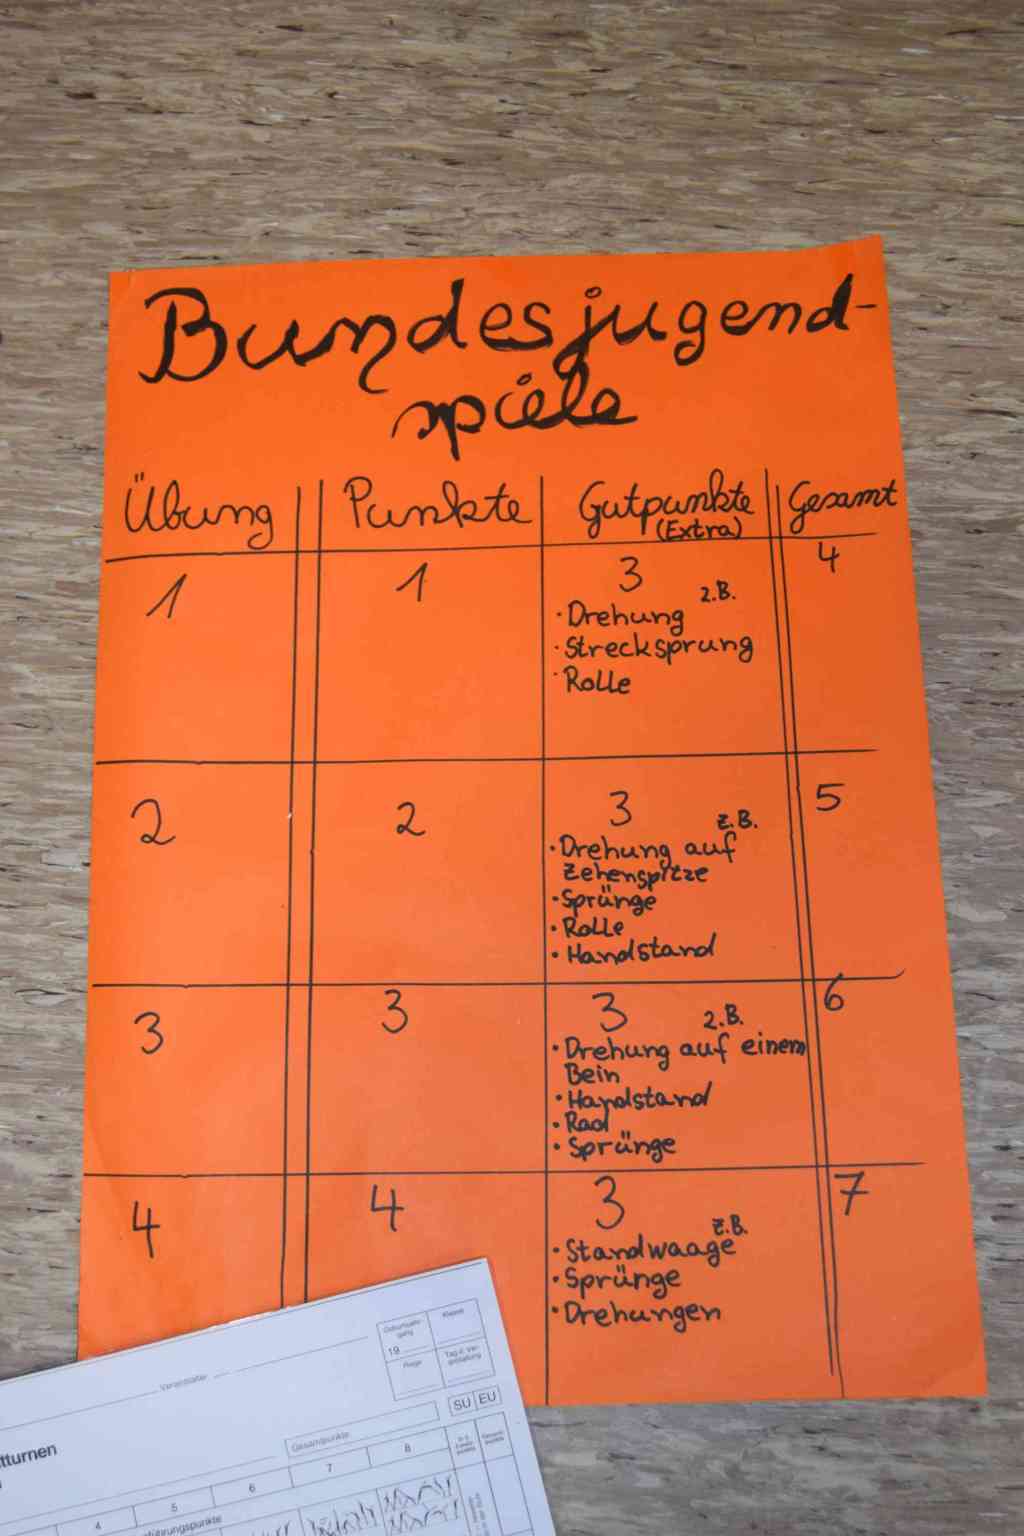 Bundesjugend-
spiele
Übung Punkte Gutpunkte Gesamt
(Extra)
1 1 3 4
z.B.
· Drehung
· Strecksprung
· Rolle
2 2 3 5
z.B.
· Drehung auf
Zehenspitze
· Sprünge
· Rolle
· Handstand
3 3 3 6
z.B.
· Drehung auf einem
Bein
· Handstand
· Rad
· Sprünge
4 4 3 7
z.B.
· Standwaage
· Sprünge
· Drehungen
Geburtsjahr-
gang
19
Klasse
Riege
Tag d. Ver-
anstaltung
Veranstalter
SU EU
Gesamtpunkte
tturnen
4 5 6 7 8
führungspunkte